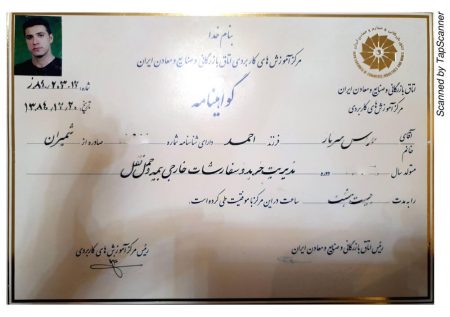 بنام خدا
مرکز آموزش های کاربردی اتاق بازرگانی و صنایع و معادن ایران
گواهینامه
تاریخ: ۱۳۸۴،۱۲،۲۰
اتاق بازرگانی و صنایع و معادن ایران
مرکز آموزش های کاربردی
آقای
خانم
فرزند احمد دارای شناسنامه شماره صادره از شمیران
متولد سال دوره مدیریت خرید و سفارشات خارجی بیمه و حمل و نقل
را به مدت بیست و هشت ساعت در این مرکز با موفقیت طی کرده است.
رئیس مرکز آموزش های کاربردی
رئیس اتاق بازرگانی و صنایع و معادن ایران
Scanned by TapScanner